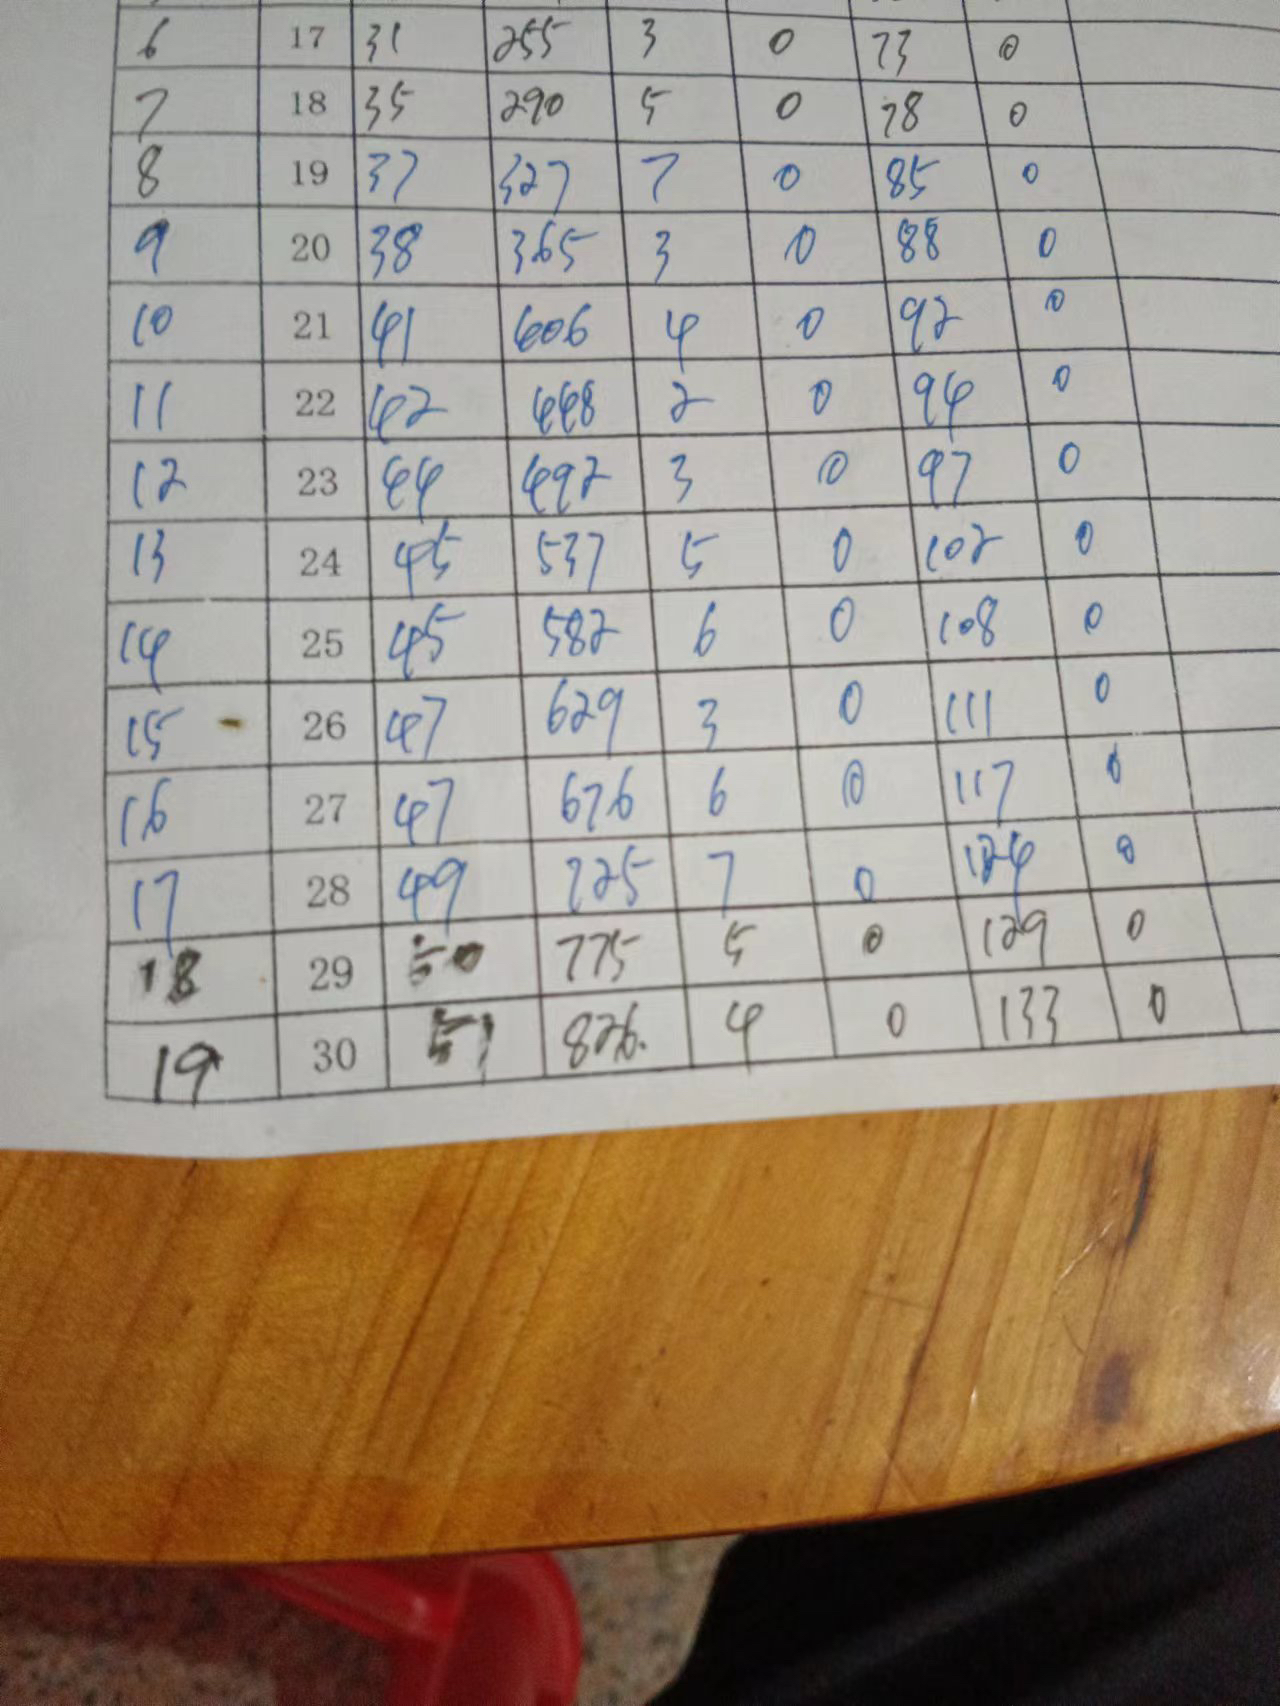 6 17 31 255 3 0 73 0
7 18 35 290 5 0 78 0
8 19 37 327 7 0 85 0
9 20 38 365 3 0 88 0
10 21 41 406 4 0 92 0
11 22 42 448 2 0 94 0
12 23 44 492 3 0 97 0
13 24 45 537 5 0 102 0
14 25 45 582 6 0 108 0
15 26 47 629 3 0 111 0
16 27 47 676 6 0 117 0
17 28 49 725 7 0 124 0
18 29 50 775 5 0 129 0
19 30 51 826. 4 0 133 0